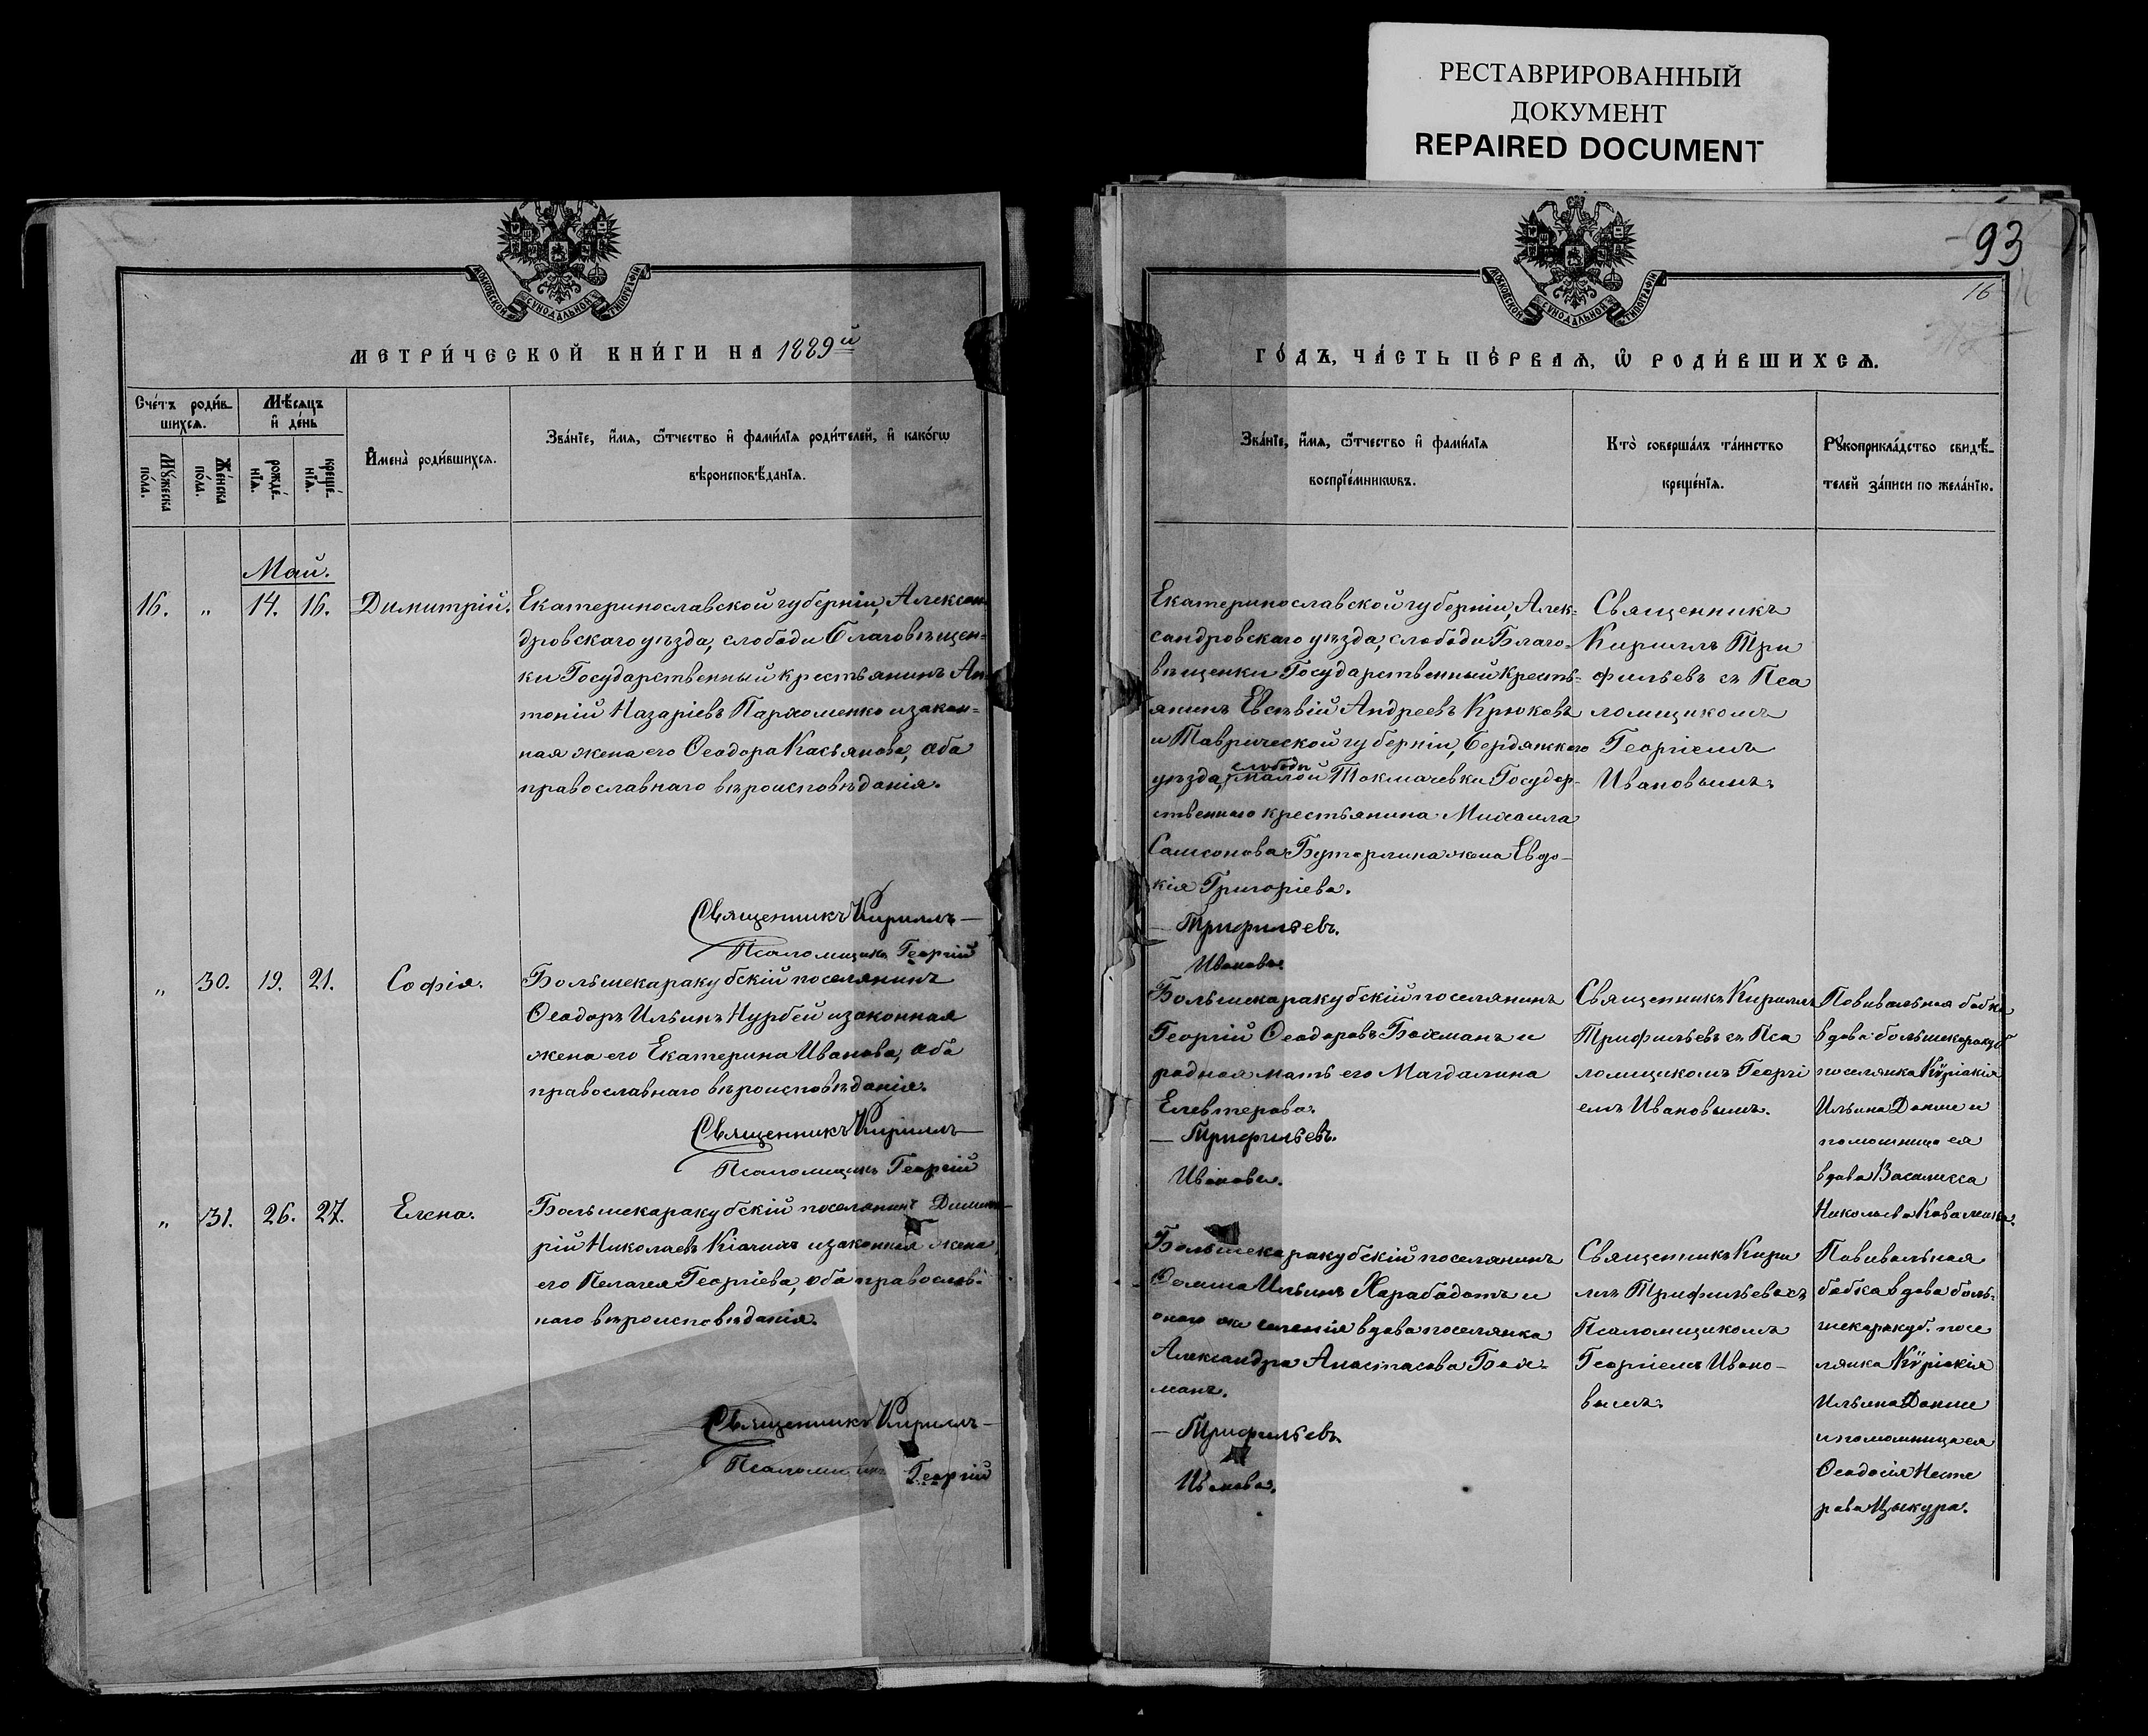 РЕСТАВРИРОВАННЫЙ
ДОКУМЕНТ
REPAIRED DOCUMENT
МОСКОВСКОЙ СУНОДАЛЬНОЙ ТИПОГРАФІИ
МЕТРИ́ЧЕСКОЙ КНИ́ГИ НА 1889й
Сче́тъ роди́в-
шихсѧ.
Мѣ́сѧцъ
и҆ де́нь
Мꙋ́жеска
по́ла.
Же́нска
по́ла.
рожде́-
нїѧ.
креще́-
нїѧ.
И҆мена̀ роди́вшихсѧ.
Зва́нїе, и҆́мѧ, ѻ҆́тчество и҆ фами́лїѧ роди́телей, и҆ како́гѡ
вѣроисповѣ́данїѧ.
Май.
16. " 14. 16. Димитрій.
Екатеринославской губерніи, Алексан-
дровскаго уѣзда, слободы Благовѣщен-
ки Государственный крестьянинъ Ан-
тоній Назаріевъ Пархоменко и закон-
ная жена его Ѳеодора Касьянова, оба
православнаго вѣроисповѣданія.
Священникъ Кириллъ —
Псаломщикъ Георгій
" 30. 19. 21. Софія.
Большекаракубскій поселянинъ
Ѳеодоръ Ильинъ Нурбей и законная
жена его Екатерина Иванова, оба
православнаго вѣроисповѣданія.
Священникъ Кириллъ —
Псаломщикъ Георгій
" 31. 26. 27. Елена.
Большекаракубскій поселянинъ Димит-
рій Николаевъ и законная жена
его Пелагея Георгіева, оба православ-
наго вѣроисповѣданія.
Священникъ Кириллъ —
Псаломщикъ Георгій
93
16
МОСКОВСКОЙ СУНОДАЛЬНОЙ ТИПОГРАФІИ
ГО́ДЪ, ЧА́СТЬ ПЕ́РВАѦ, Ѡ҆ РОДИ́ВШИХСѦ.
Зва́нїе, и҆́мѧ, ѻ҆́тчество и҆ фами́лїѧ
воспрїе́мникѡвъ.
Кто̀ соверша́лъ та́инство
креще́нїѧ.
Рꙋкоприкла́дство свидѣ́-
телей за́писи по жела́нїю.
Екатеринославской губерніи, Алек-
сандровскаго уѣзда, слободы Благо-
вѣщенки Государственный кресть-
янинъ Евсѣвій Андреевъ Крюковъ
и Таврической губерніи, Бердянскаго
уѣзда, слободы малой Токмачевки Государ-
ственнаго крестьянина Михаила
Самсонова Бутерлина жена Евдо-
кія Григоріева.
— Трифильевъ.
Ивановъ
Священникъ
Кириллъ Три
фильевъ съ Пса
ломщикомъ
Георгіемъ
Ивановымъ.
Большекаракубскій поселянинъ
Георгій Ѳеодоровъ Бахманъ и
родная мать его Магдалина
Елевтерова.
— Трифильевъ.
Ивановъ.
Священникъ Кириллъ
Трифильевъ съ Пса
ломщикомъ Георгі
емъ Ивановымъ.
Повивальная бабка
вдова большекаракуб
поселянка Кѵріакія
Ильина Донше и
помошница ея
вдова Василисса
Николаева Коваленко.
Большекаракубскій поселянинъ
Ѳома Ильинъ Харабадотъ и
онаго же селенія вдова поселянка
Александра Анастасова Бах-
манъ.
— Трифильевъ
Ивановъ.
Священникъ Кири
ллъ Трифильевъ съ
Псаломщикомъ
Георгіемъ Ивано-
вымъ.
Повивальная
бабка вдова боль-
шекаракуб. посе
лянка Кѵріакія
Ильина Донше
и помошница ея
Ѳеодосія Несте
рова Цыкура.